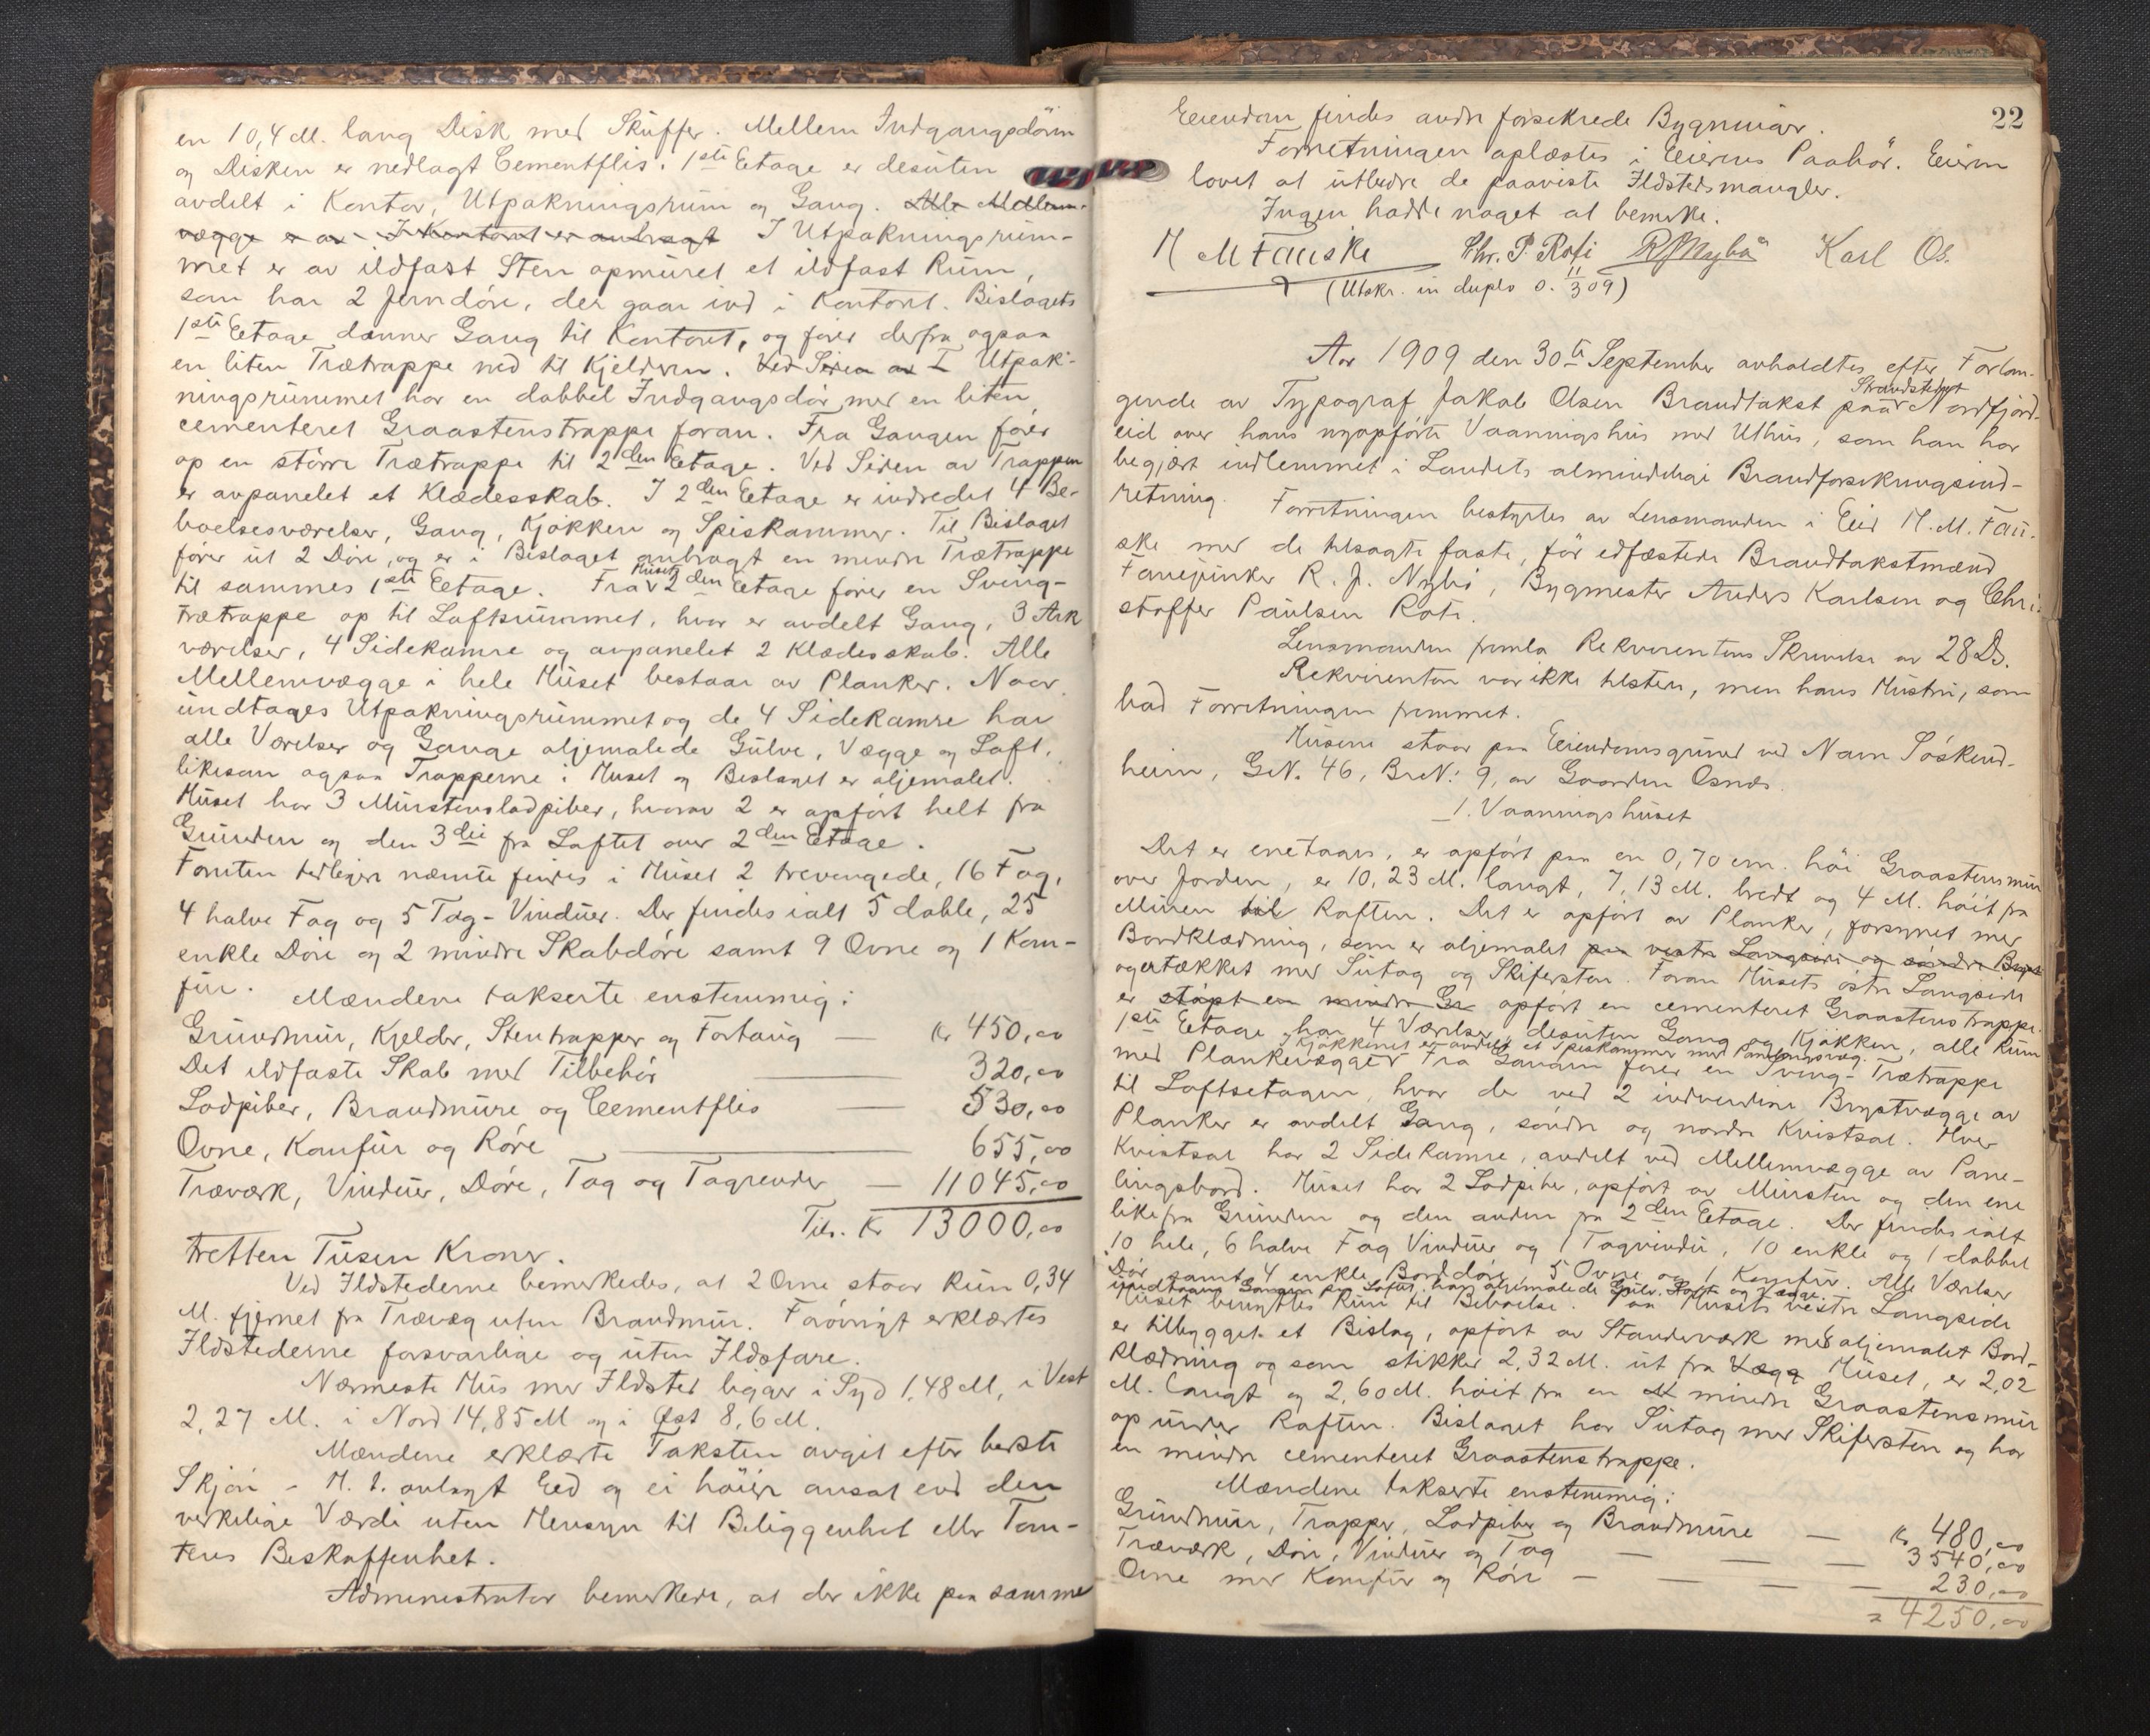 en 10,4 M. lang Disk med Skuffer. Mellem Indgangsdören
og Disken er nedlagt Cementflis. 1ste Etage er desuten
avdelt i Kontor, Utpakningsrum og Gang. Alle Mellem-
vægge er av I Kontoret er anbragt I Utpakningsrum-
met er av ildfast Sten opmuret et ildfast Rum,
som har 2 Jerndöre, der gaar ind i Kontoret. Bislagets
1ste Etage danner Gang til Kontoret, og förer derfra ogsaa
en liten Trætrappe ned til Kjelderen. Ved Siden av I Utpak-
ningsrummet har en dobbel Indgangsdör med en liten
cementeret Graastenstrappe foran. Fra Gangen förer
op en större Trætrappe til 2den Etage. Ved Siden av Trappen
er avpanelet et Klædesskab. I 2den Etage er indredet 4 Be-
boelsesværelser, Gang, Kjökken og Spiskammer. Til Bislaget
förer ut 2 Döre, og er i Bislaget anbragt en mindre Trætrappe
til sammes 1ste Etage. Fra Husets 2den Etage förer en Sving-
trætrappe op til Loftsrummet, hvor er avdelt Gang, 3 Ark
værelser, 4 Sidekamre og avpanelet 2 Klædesskab. Alle
Mellemvægge i hele Huset bestaar av Planker. Naar
undtages Utpakningsrummet og de 4 Sidekamre har
alle Værelser og Gange oljemalede Gulve, Vægge og Loft,
likesom ogsaa Trapperne i Huset og Bislaget er oljemalet.
Huset har 3 Murstenslodpiber, hvorav 2 er opfört helt fra
Grunden og den 3die fra Loftet over 2den Etage.
Foruten tidligere nævnte findes i Huset 2 trevengede, 16 Fag,
4 halve Fag og 5 Tag-Vinduer. Der findes ialt 5 doble, 25
enkle Döre og 2 mindre Skabdöre samt 9 Ovne og 1 Kom-
für. Mændene takserte enstemmig:
Grundmur, Kjelder, Stentrapper og Fortaug — Kr 450,00
Det ildfaste Skab med Tilbehör — 320,00
Lodpiber, Brandmure og Cementflis — 530,00
Ovne, Komfur og Röre — 655,00
Træværk, Vinduer, Döre, Tag og Tagrender — 11045,00
Tils. Kr 13000,00
tretten Tusen Kroner.
Ved Ildstederne bemerkedes, at 2 Ovne staar kun 0,34
M. fjernet fra Trævæg uten Brandmur. Forövrigt erklærtes
Ildstederne forsvarlige og uten Ildsfare.
Nærmeste Hus med Ildsted ligger i Syd 1,48 M, i Vest
2,27 M. i Nord 14,85 M og i Öst 8,6 M.
Mændene erklærte Taksten avgit efter beste
Skjön - H. t. avlagt Eed og ei höiere ansat end den
verkelige Værdi uten Hensyn til Beliggenhet eller Tom-
tens Beskaffenhet.
Administrator bemerkede, at der ikke paa samme
22
Eiendom findes andre forsikrede Bygninger.
Forretningen oplæstes i Eierens Paahör. Eieren
lovet at utbedre de paaviste Ildstedsmangler.
Ingen hadde noget at bemerke.
H M Fauske Chr. P. Roti R J Nybö Karl Os.
(Utskr. in duplo d. 11/3 09)
Aar 1909 den 30te September avholdtes efter Forlan-
gende av Typograf Jakob Olsen Brandtakst paa Strandstedet Nordfjord-
eid over hans nyopförte Vaaningshus med Uthus, som han har
begjært indlemmet i Landets almindelige Brandforsikringsind-
retning. Forretningen bestyrtes av Lensmanden i Eid H. M. Fau-
ske med de tilsagte faste, för edfæstede Brandtakstmænd
Fanejunker R. J. Nybö, Bygmester Anders Karlsen og Chri-
stoffer Paulsen Roti.
Lensmanden fremla Rekvirentens Skrivelse av 28 Ds.
Rekvirenten var ikke tilstede, men hans Hustru, som
bad Forretningen fremmet.
Husene staar paa Eiendomsgrund ved Navn Söskend-
heim, G.N. 46, Br.N. 9, av Gaarden Osnæs.
1. Vaaningshuset
Det er enetages, er opfört paa en 0,70 cm. höi Graastensmur
over Jorden, er 10,23 M. langt, 7,13 M. bredt og 4 M. höit fra
Muren til Raften. Det er opfört av Planker, forsynet med
Bordklædning, som er oljemalet paa vestre Langside og söndre Bryst
og er tækket med Sutag og Skifersten. Foran Husets östre Langside
er stöpt en mindre Gr opfört en cementeret Graastenstrappe.
1ste Etage har 4 Værelser, desuten Gang og Kjökken, alle Rum
I Kjökkenet er avdelt et Spiskammer med Panelingsvæg.
med Plankevægge. Fra Gangen förer en Sving-Trætrappe
til Loftsetagen, hvor der ved 2 indvendige Brystvægge av
Planker er avdelt Gang, söndre og nordre Kvistsal. Hver
Kvistsal har 2 Sidekamre, avdelt ved Mellemvægge av Pane-
lingsbord. Huset har 2 Lodpiber, opfört av Mursten og den ene
like fra Grunden og den anden fra 2den Etage. Der findes ialt
10 hele, 6 halve Fag Vinduer og 1 Tagvindu, 10 enkle og 1 dobbel
Dör samt 4 enkle Borddöre, 5 Ovne og 1 Komfür. Alle Værelser
undtagen Gangen paa Loftet har oljemalede Gulv, Loft og Vægge.
Huset benyttes kun til Beboelse. Paa Husets vestre Langside
er tilbygget et Bislag, opfört av Standerværk med oljemalet Bord-
klædning og som stikker 2,32 M. ut fra Vægg Huset, er 2,02
M. langt og 2,60 M. höit fra en mindre Graastensmur
op under Raften. Bislaget har Sutag med Skifersten og har
en mindre cementeret Graastenstrappe.
Mændene takserte enstemmig:
Grundmur, Trapper, Lodpiber og Brandmure — Kr 480,00
Træværk, Döre, Vinduer og Tag — — — 3540,00
Ovne med Komfür og Röre — — — — 230,00
= 4250,00